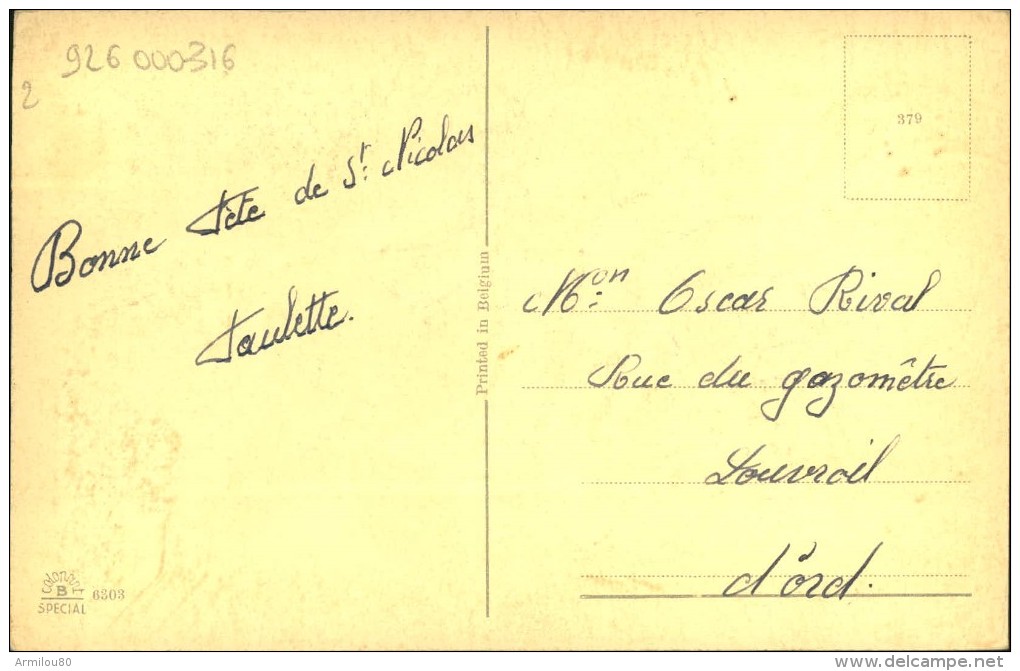 926 000316
2
379
Bonne Fête de St Nicolas
Paulette.
Printed in Belgium
Mon Oscar Rival
Rue du gazomètre
Louvroil
colorprint
B
SPECIAL
6303
Armilou80
http://www.delcampe.net